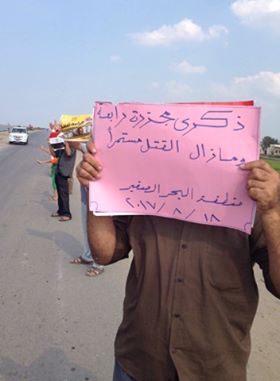 ذكرى مجزرة رابعة
ومازال القتل مستمراً
منطقة البحر الصغير
٢٠١٧/٨/١٨